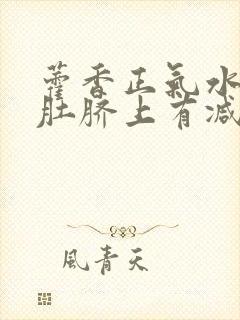 藿香正氣水
肚脐上有减
風青天